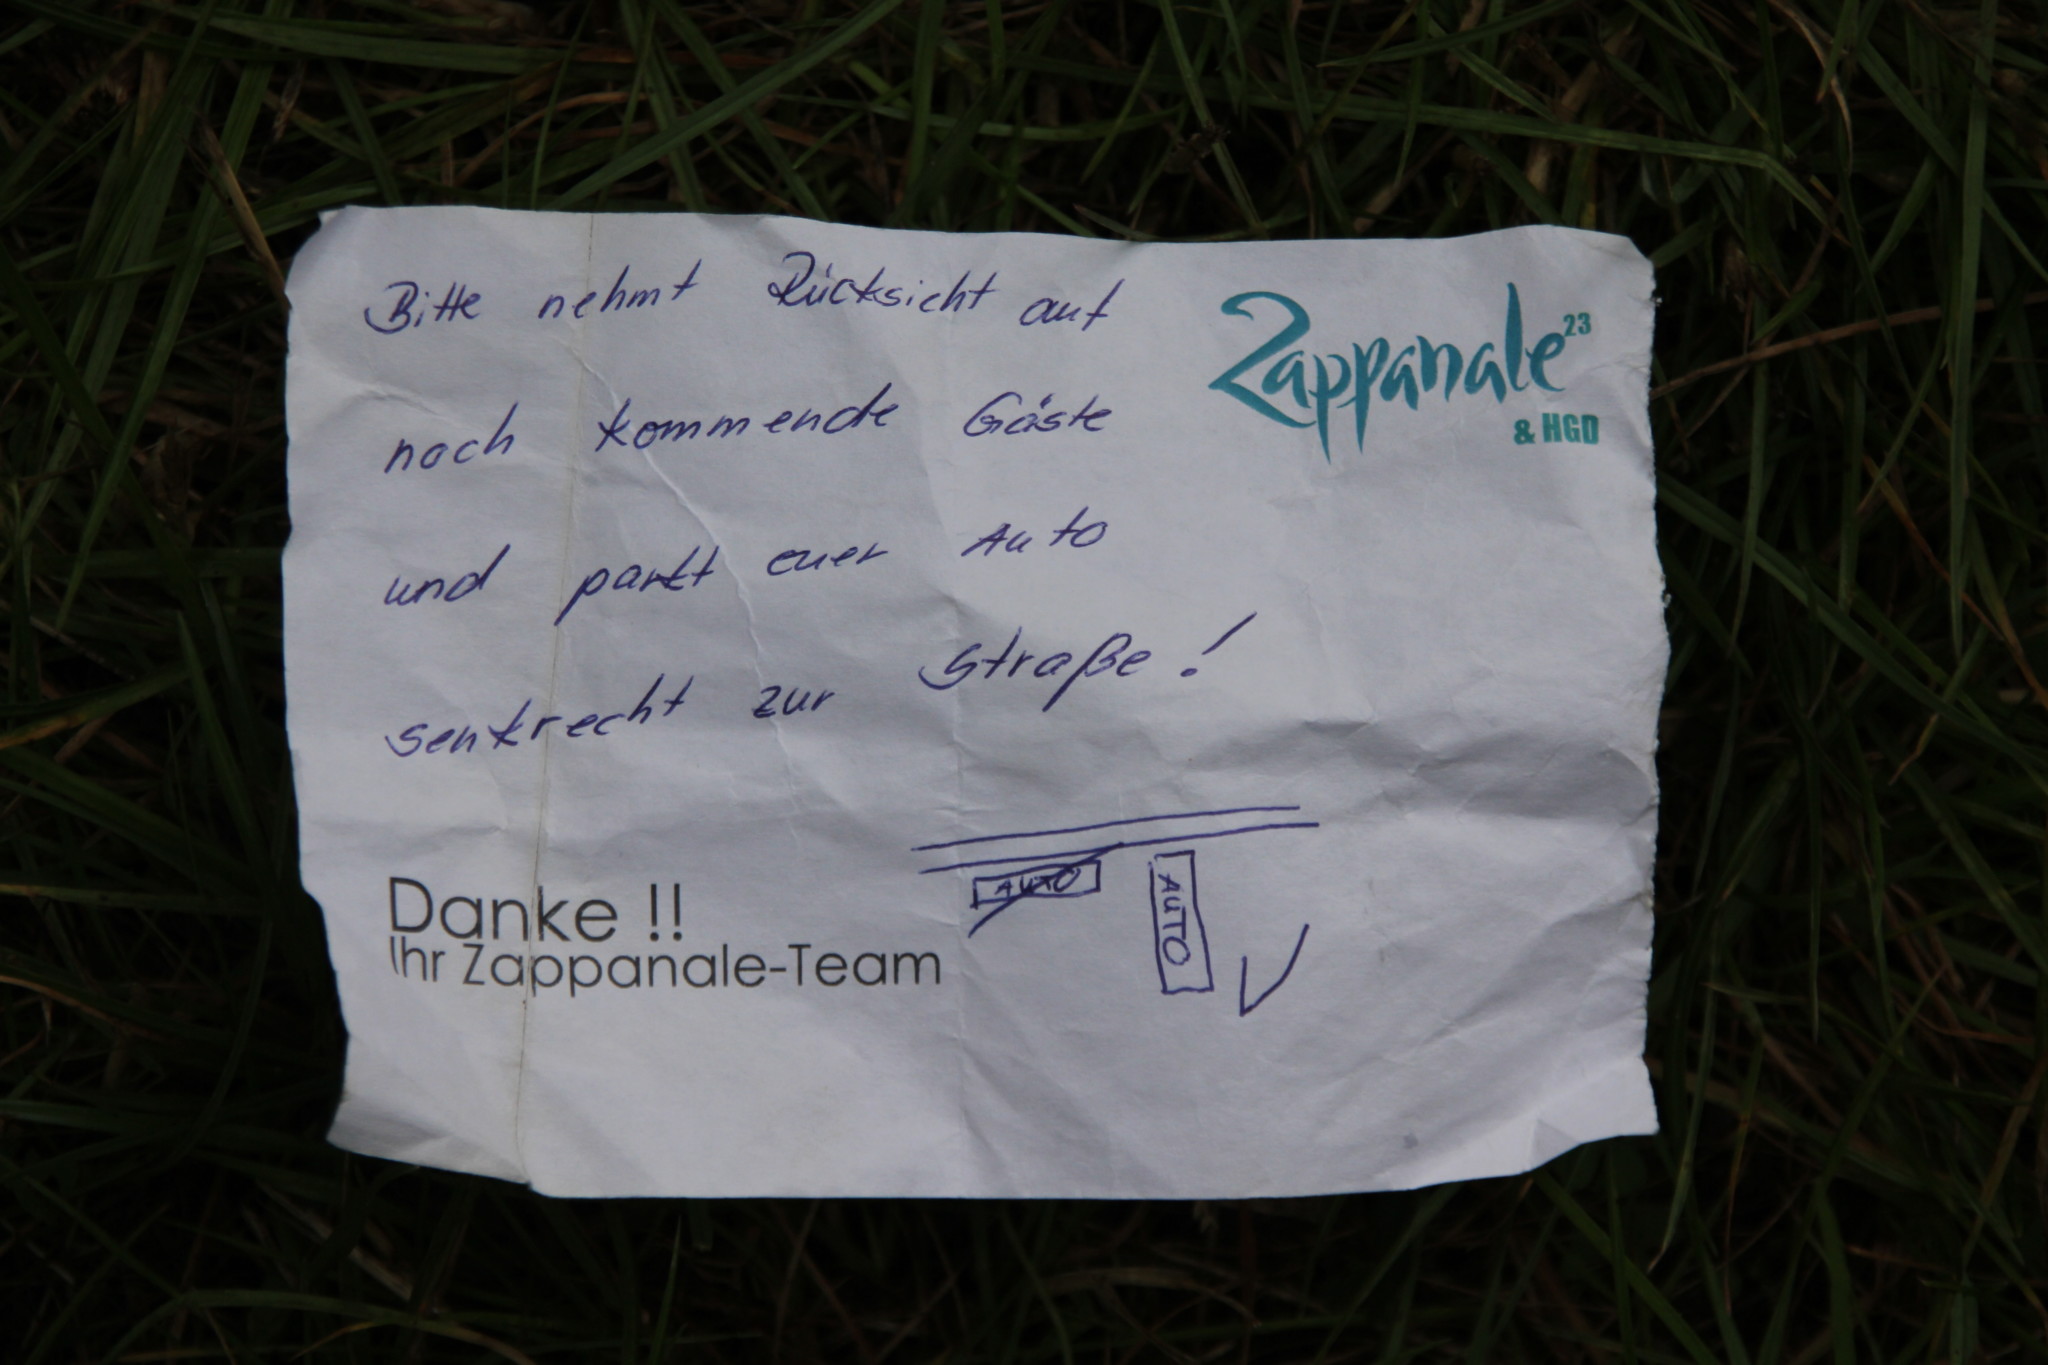 Bitte nehmt Rücksicht auf
noch kommende Gäste
und parkt euer Auto
senkrecht zur Straße!
Zappanale 23
& HGD
Danke !!
Ihr Zappanale-Team
AUTO
AUTO